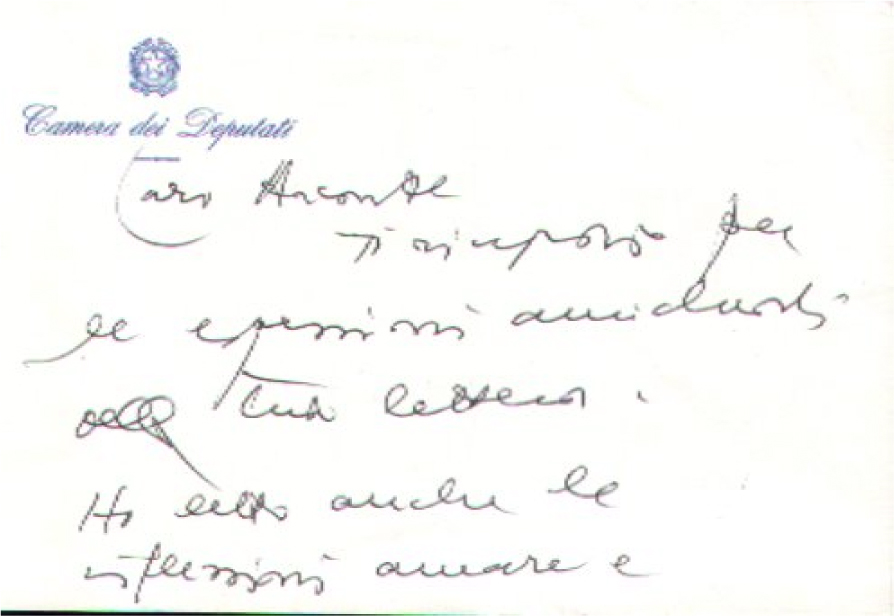 Camera dei Deputati
Caro Arconte
Ti ringrazio per
le espressioni amichevoli
della tua lettera.
Ho letto anche le
riflessioni amare e